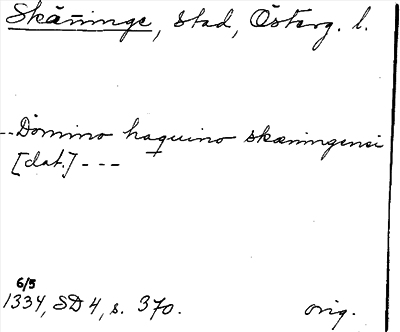 Skänninge, stad, Österg. l.
--Domino haquino skæningensi
[dat.] ---
6/5
1334, SD 4, s. 370. orig.